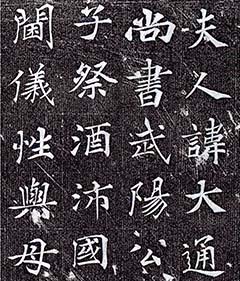 夫人諱大通
尚書武陽公
子祭酒沛國
閫儀性與母